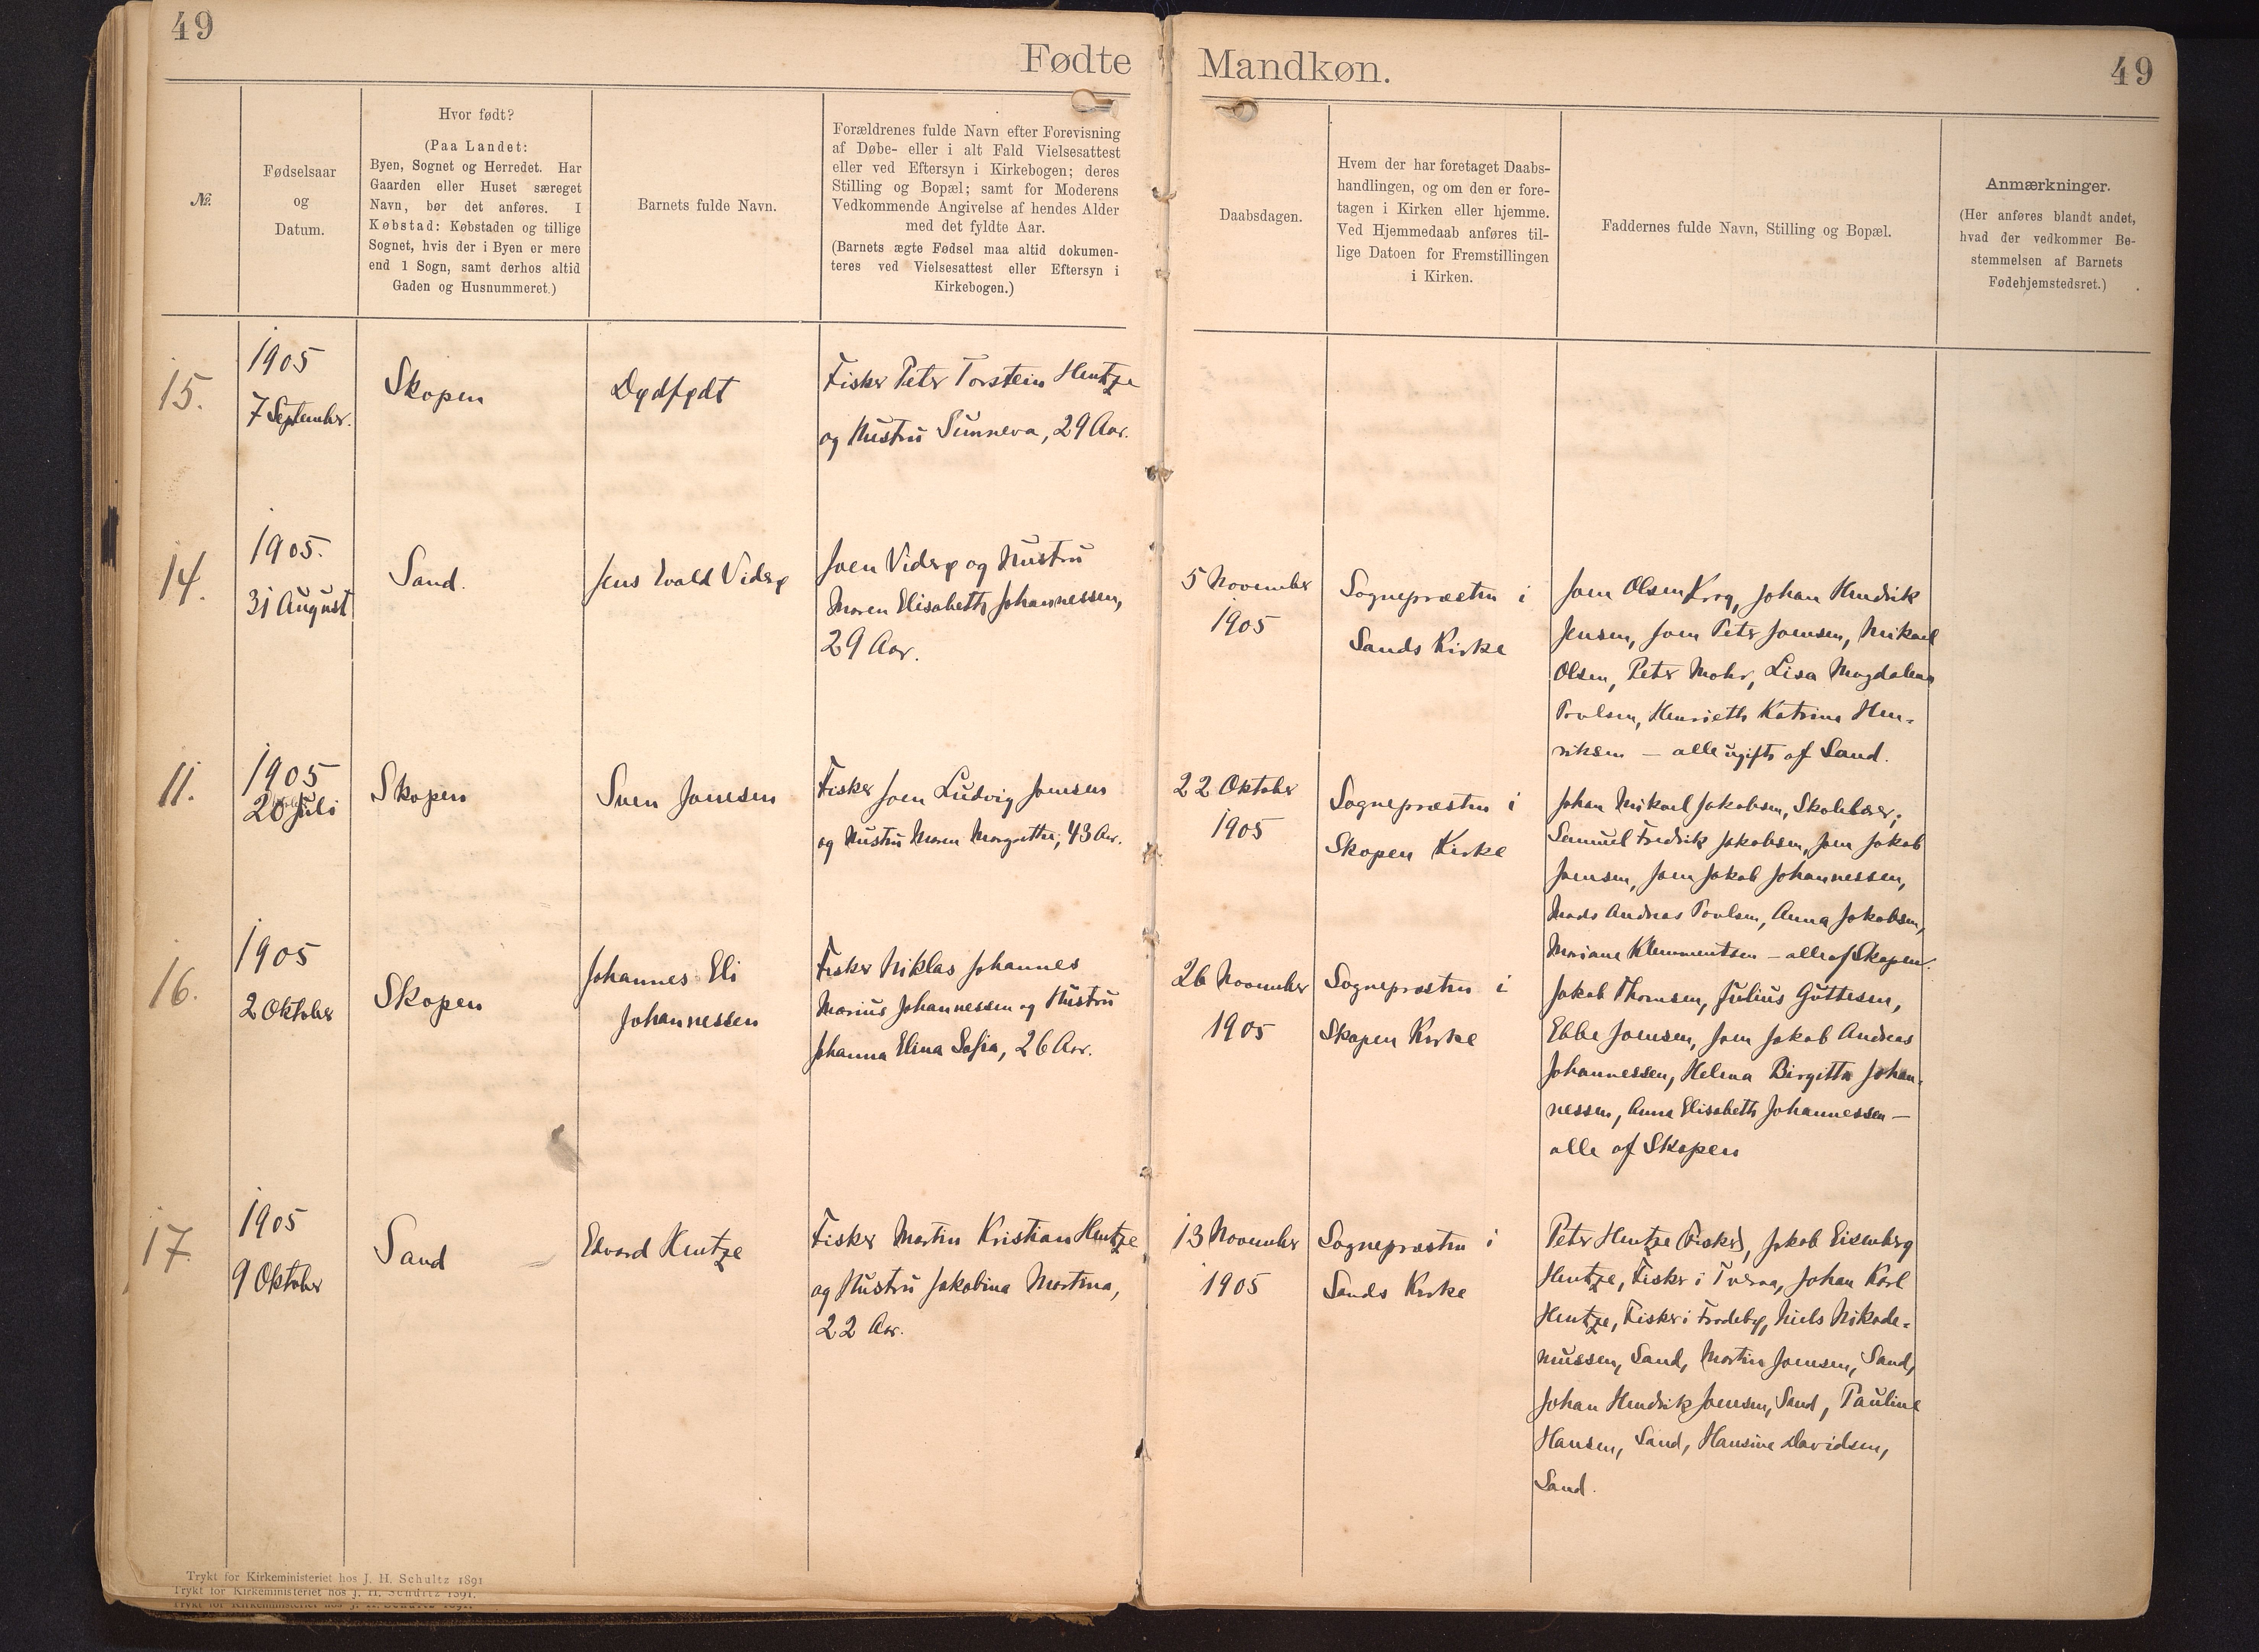 49
Fødte Mandkøn.
49
№
Fødselsaar
og
Datum.
Hvor født?
(Paa Landet:
Byen, Sognet og Herredet. Har
Gaarden eller Huset særeget
Navn, bør det anføres. I
Købstad: Købstaden og tillige
Sognet, hvis der i Byen er mere
end 1 Sogn, samt derhos altid
Gaden og Husnummeret.)
Barnets fulde Navn.
Forældrenes fulde Navn efter Forevisning
af Døbe- eller i alt Fald Vielsesattest
eller ved Eftersyn i Kirkebogen; deres
Stilling og Bopæl; samt for Moderens
Vedkommende Angivelse af hendes Alder
med det fyldte Aar.
(Barnets ægte Fødsel maa altid dokumen-
teres ved Vielsesattest eller Eftersyn i
Kirkebogen.)
Daabsdagen.
Hvem der har foretaget Daabs-
handlingen, og om den er fore-
tagen i Kirken eller hjemme.
Ved Hjemmedaab anføres til-
lige Datoen for Fremstillingen
i Kirken.
Faddernes fulde Navn, Stilling og Bopæl.
Anmærkninger.
(Her anføres blandt andet,
hvad der vedkommer Be-
stemmelsen af Barnets
Fødehjemstedsret.)
15.
1905
7 September.
Skopen
Dødfødt
Fisker Peter Torstein Hentze
og Hustru Sunneva, 29 Aar.
14.
1905.
31 August
Sand.
Jens Evald Viderø
Joen Viderø og Hustru
Maren Elisabeth Johannessen,
29 Aar.
5 November
1905
Sognepræsten i
Sands Kirke
Joen Olsen Krog, Johan Hendrik
Jensen, Joen Peter Joensen, Mikael
Olsen, Peter Mohr, Lisa Magdalena
Poulsen, Henriette Katrina Hen-
riksen – alle ugifte af Sand.
11.
1905
20 Juli
Skopen
Sven Joensen
Fisker Joen Ludvig Joensen
og Hustru Maren Margrethe, 43 Aar.
22 Oktober
1905
Sognepræsten i
Skopen Kirke
Johan Mikael Jakobsen, Skolelærer,
Samuel Fredrik Jakobsen, Joen Jakob
Joensen, Joen Jakob Johannessen,
Mads Andreas Poulsen, Anna Jakobsen,
Mariane Klemmentsen – alle af Skopen.
16.
1905
2 Oktober
Skopen
Johannes Eli
Johannessen
Fisker Niklas Johannes
Marius Johannessen og Hustru
Johanna Elina Sofia, 26 Aar.
26 November
1905
Sognepræsten i
Skopen Kirke
Jakob Thomsen, Julius Guttesen,
Ebbe Joensen, Joen Jakob Andreas
Johannessen, Helena Birgitta Johan-
nessen, Anna Elisabeth Johannessen –
alle af Skopen
17.
1905
9 Oktober
Sand
Edvard Hentze
Fisker Martin Kristian Hentze
og Hustru Jakobina Martina,
22 Aar.
13 November
1905
Sognepræsten i
Sands Kirke
Peter Hentze (Fisker), Jakob Eisenberg
Hentze, Fisker i Tveraa, Johan Karl
Hentze, Fisker i Frodebø, Niels Nikode-
mussen, Sand, Martin Joensen, Sand,
Johan Hendrik Joensen, Sand, Pauline
Hansen, Sand, Hansine Davidsen,
Sand.
Trykt for Kirkeministeriet hos J. H. Schultz 1891
Trykt for Kirkeministeriet hos J. H. Schultz 1891.